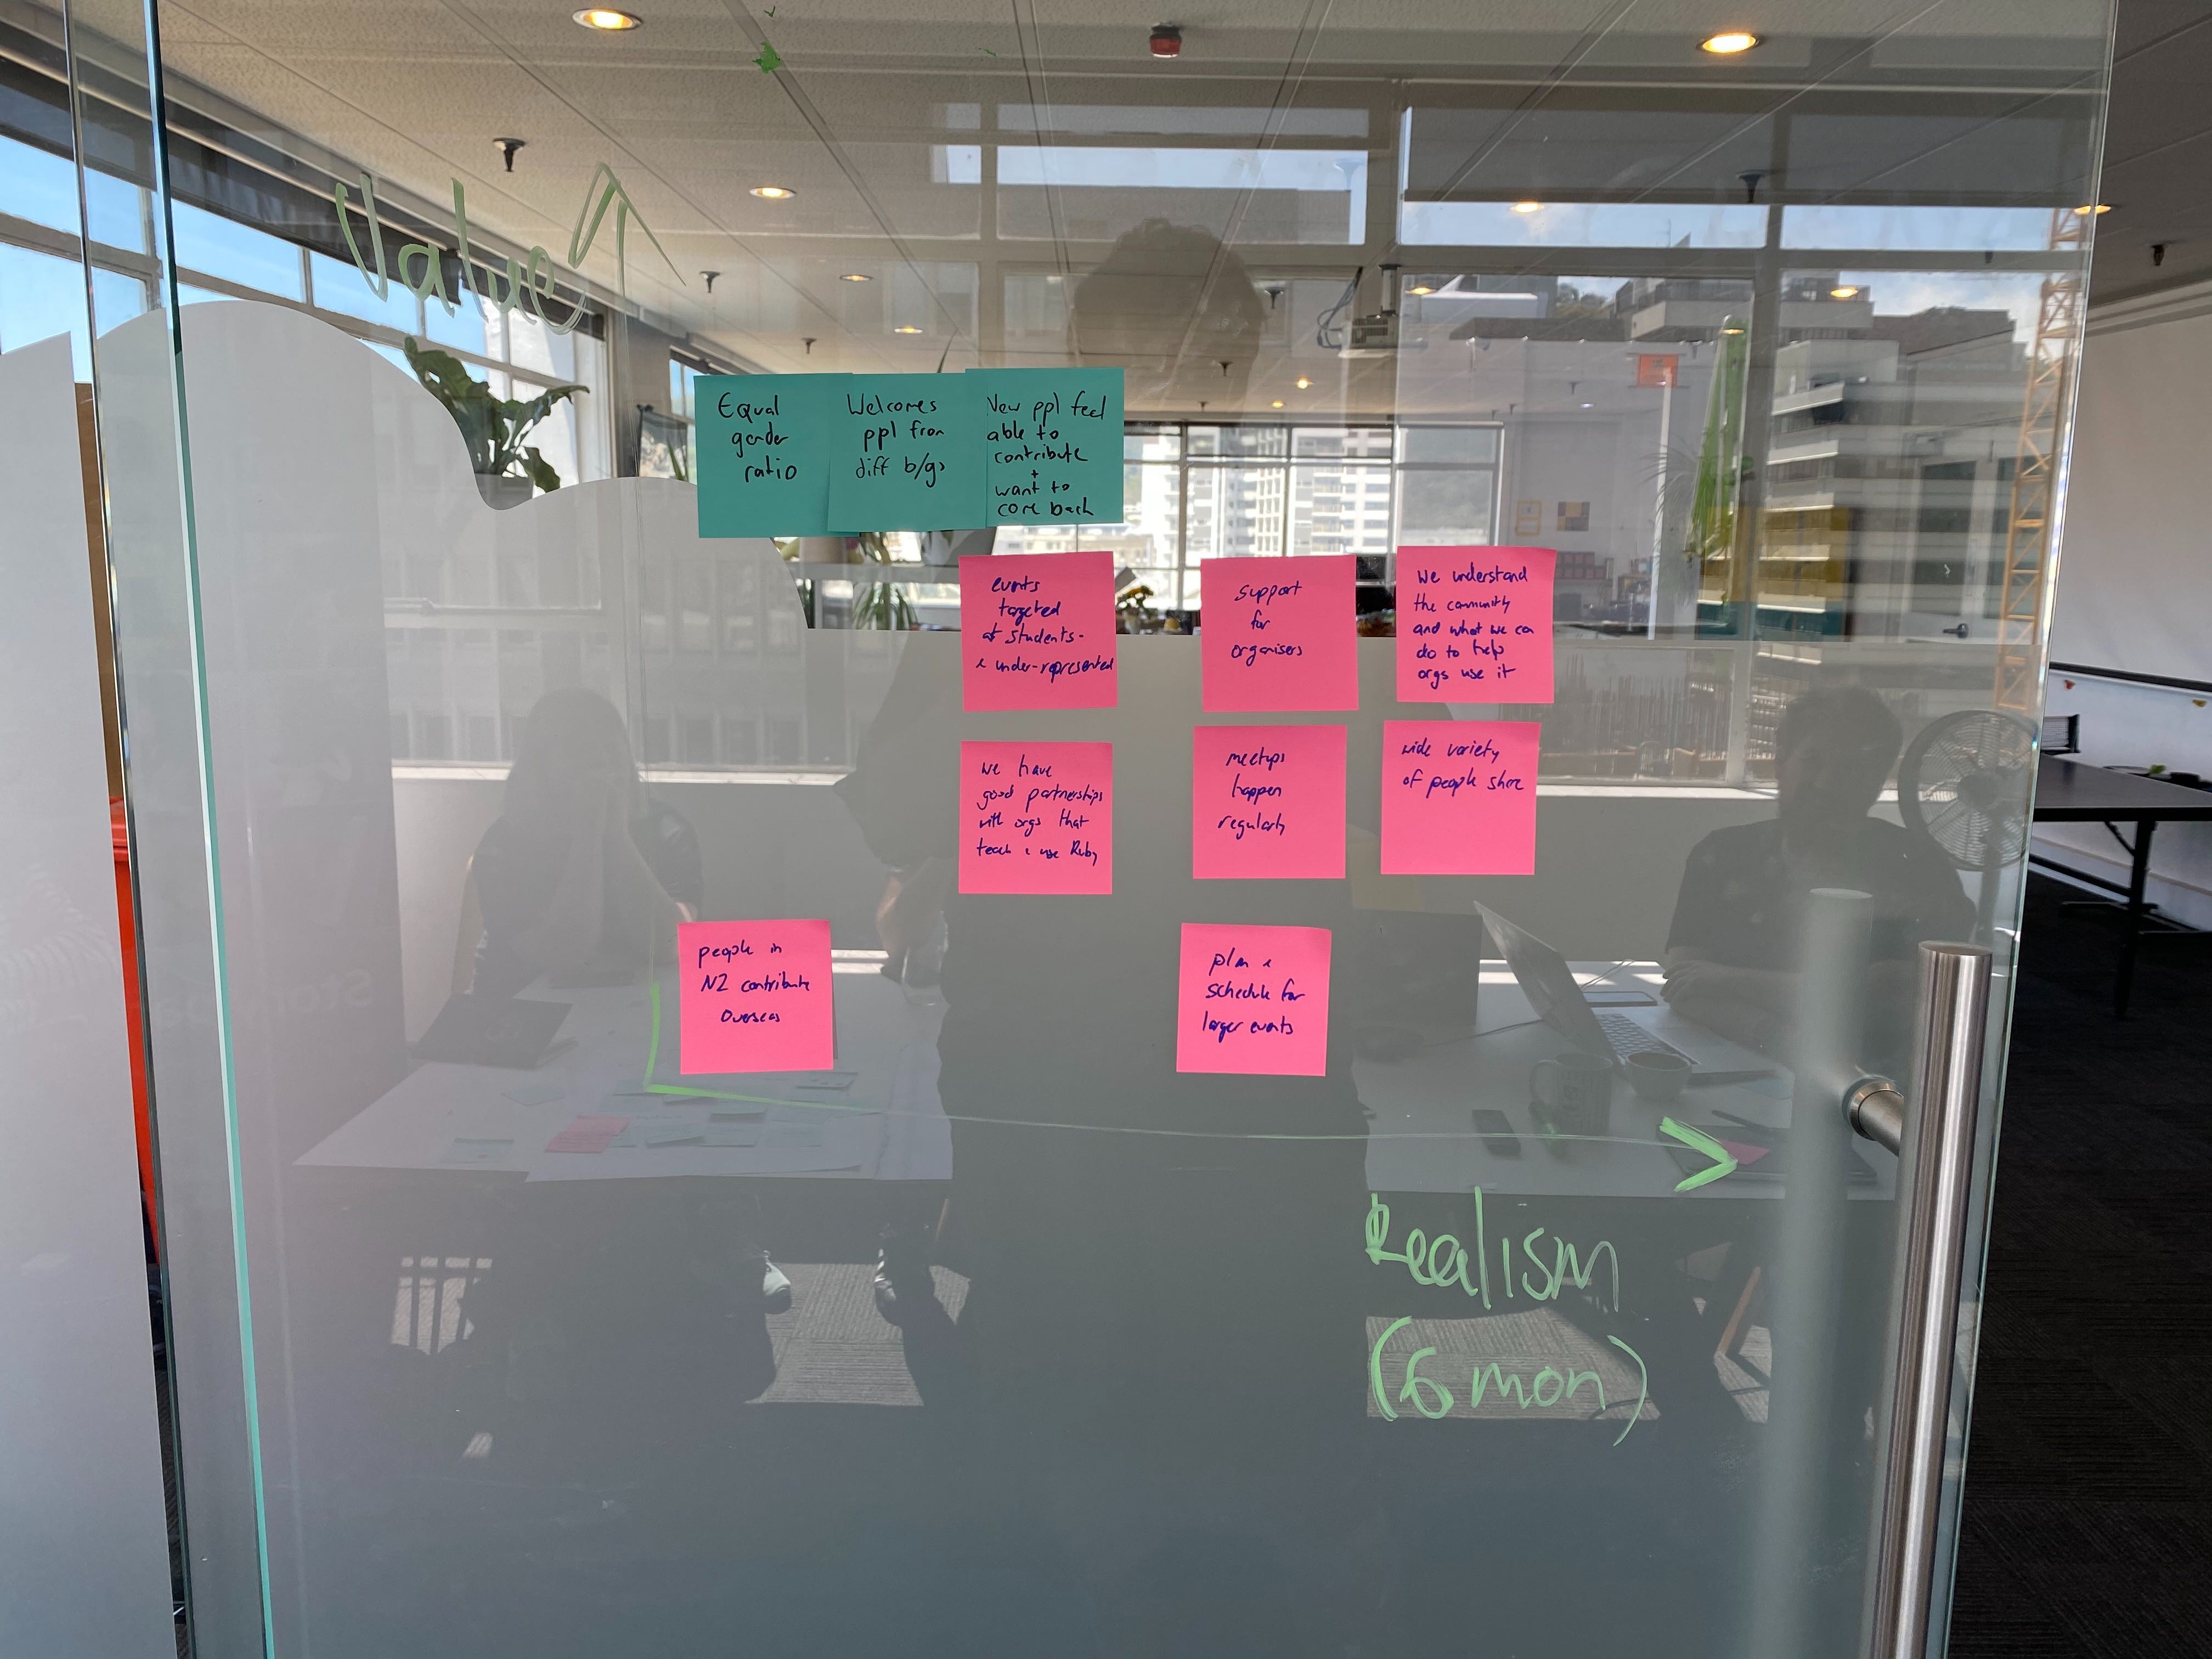 Value
Equal
gender
ratio
Welcomes
ppl from
diff b/gs
New ppl feel
able to
contribute
+
want to
come back
events
targeted
at students-
& under-represented
support
for
organisers
We understand
the community
and what we can
do to help
orgs use it
we have
good partnerships
with orgs that
teach & use Ruby
meetups
happen
regularly
wide variety
of people share
people in
NZ contribute
overseas
plan &
schedule for
larger events
Realism
(6 mon)